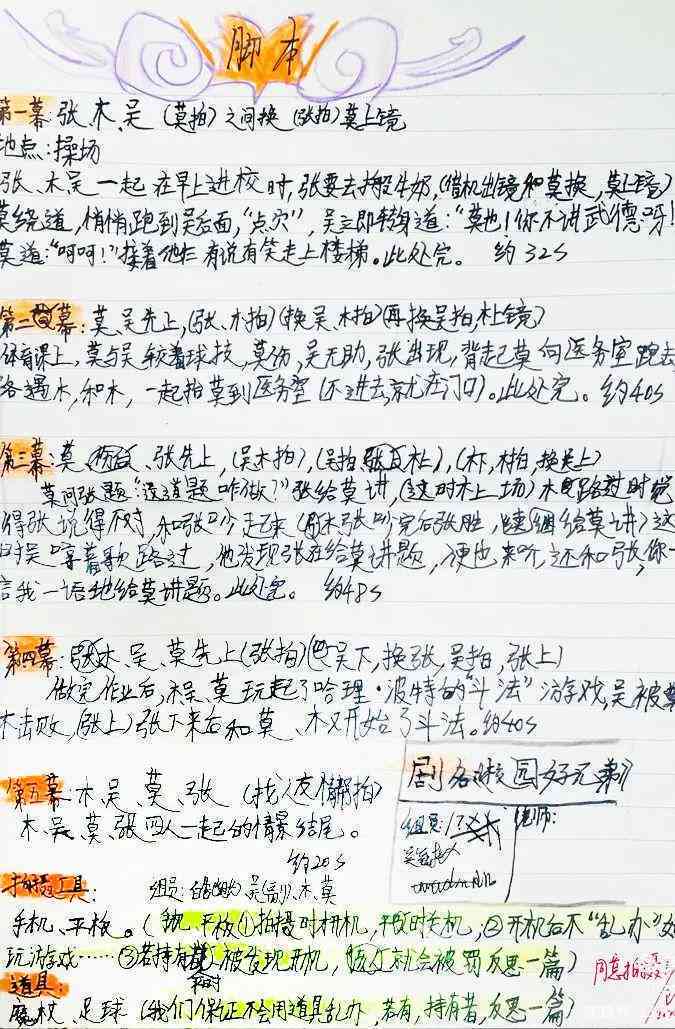 脚本
第一幕:张、木、吴(莫拍)之间换(张拍)莫上镜
地点:操场
张、木吴一起在早上进校时,张要去搬牛奶,(借机出镜和莫换,莫上镜)
莫绕道,悄悄跑到吴后面,“点穴”,吴立即转身道:“莫也!你不讲武德呀!
莫道:“呵呵!”接着他仨有说有笑走上楼梯。此处完。 约32s
第二幕:莫、吴先上,(张、木拍)(换吴、木拍)(再换吴拍,木上镜)
体育课上,莫与吴较着球技,莫伤,吴无助,张出现,背起莫向医务室跑去
路遇木,和木,一起抬莫到医务室(不进去,就在门口)。此处完。约40s
第三幕:莫、张先上,(吴木拍),(吴拍,木上),(木下,木拍,换吴上)
莫问张题:“这道题咋做?”张给莫讲,(这时木上场)木路过时觉
得张说得不对,和张吵起来(木张吵完后张胜,继续给莫讲)这
时吴哼着歌路过,他发现张在给莫讲题,便也来听,还和张,你一
言我一语地给莫讲题。此处完。 约48s
第四幕:木、吴、莫先上(张拍)(吴下,换张,吴拍,张上)
做完作业后,木吴、莫玩起了哈理·波特的“斗法”游戏,吴被莫
木击败,(张上)张下来后和莫、木又开始了斗法。约40s
第五幕:木、吴、莫、张(找人帮拍)
木、吴、莫、张四人一起的情景结尾。
约20s
剧名:校园好兄弟
组员: 老师:
拍摄工具: 组员: 吴(副)、木、莫
手机、平板。(平板①拍摄时开机,平时关机,②开机后不“乱办”如
玩游戏……③若持有者平时被发现开机,就会被罚反思一篇)
道具:
魔杖、足球(我们保证不会用道具乱办,若有,持有者,反思一篇)
同意拍摄